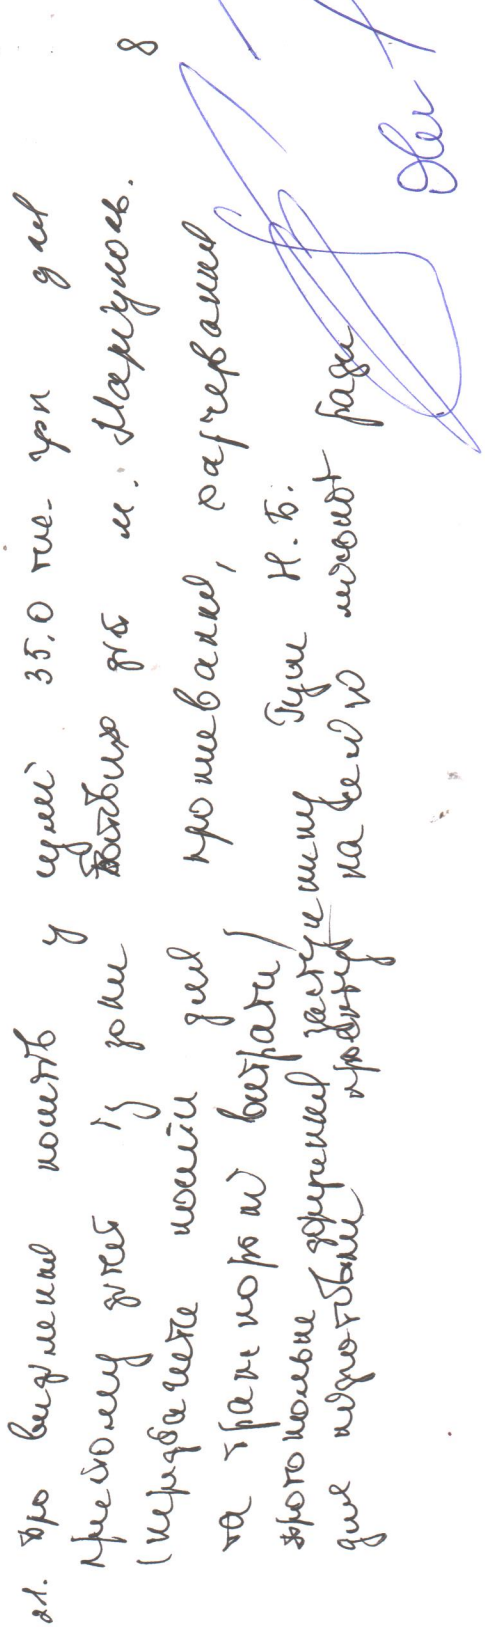 21. Про виділення коштів у сумі 35,0 тис. грн для
прийому дітей із зони бойових дій м. Маріуполь.
(передбачити кошти для проживання, харчування
та транспортні витрати)
протокольне доручення заступнику Гуш Н.Б.
для підготовки проекту на сесію міської ради
8